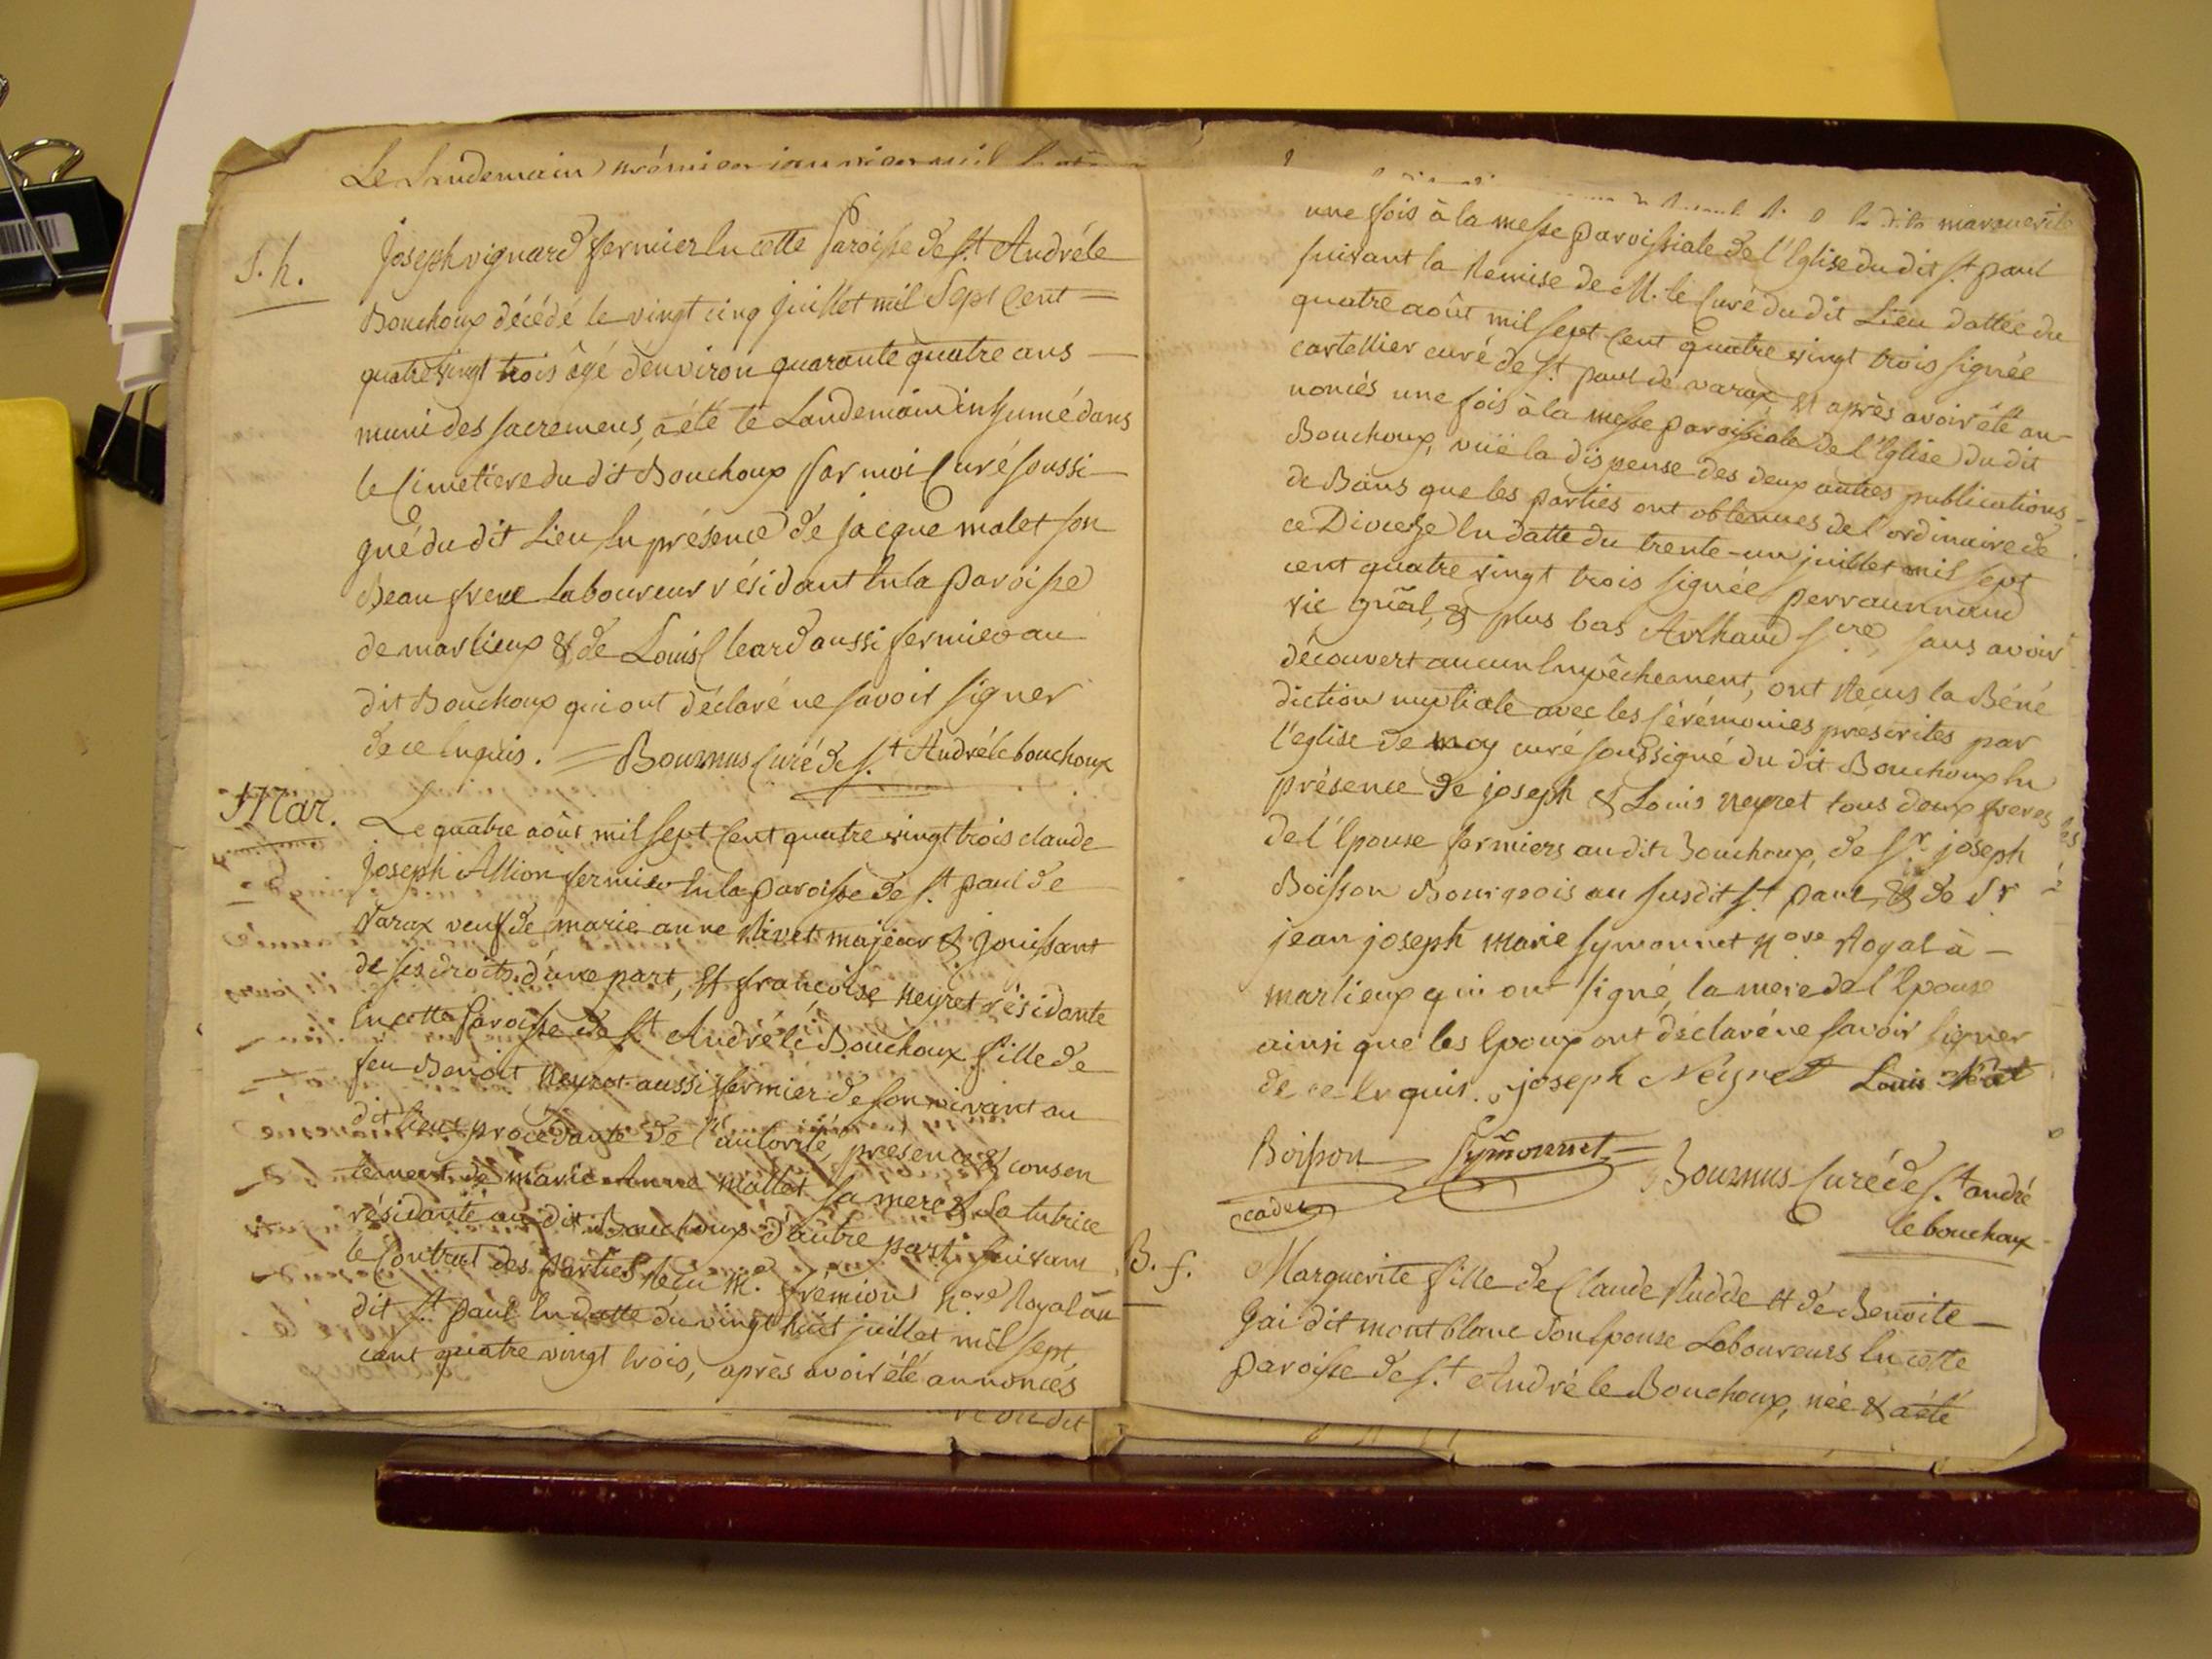 Le Landemain prémier janvier mil
S. h.
Joseph vignard fermier En cette Paroisse de St. André le
Bouchoux décédé le vingt cinq juillet mil Sept Cent
quatre vingt trois âgé d'environ quarante quatre ans
muni des sacremens, a été le Landemain inhumé dans
le Cimetiere du dit Bouchoux Par moi Curé soussi-
gné du dit Lieu En présence de jacque malet son
Beau frere Laboureur résidant En la paroisse
de marlieux & de Louis Cleard aussi fermier au
dit Bouchoux qui ont déclaré ne savoir signer
de ce Enquis. = Bournus Curé de St. André le bouchoux
Mar.
Le quatre août mil sept Cent quatre vingt trois claude
Joseph Allion fermier En la paroisse de St. paul de
Varax veuf de marie anne Rivet majeur & Jouissant
de ses droits d'une part, Et françoise Neyret résidante
En cette Paroisse de St. André le Bouchoux fille de
feu Benoit Neyret aussi fermier de son vivant au
dit Lieu procédante de l'autorité, présence & consen
tement de marie Anne Mallet sa mere & sa tutrice
résidante au dit Bouchoux d'autre part suivant
le Contrat des parties Recu Me. frémion Nore Royal au
dit St. paul En datte du vingt huit juillet mil sept
cent quatre vingt trois, après avoir été annoncés
ve du dit
la dite marguerite
une fois à la messe paroissiale de l'Eglise du dit St. paul
suivant la Remise de M. le Curé du dit Lieu dattée du
quatre août mil sept Cent quatre vingt trois signée
cartellier curé de St. paul de varax, Et après avoir été an-
noncés une fois à la messe paroissiale de l'Eglise du dit
Bouchoux, vüe la dispense des deux autres publications
de Bans que les parties ont obtenues de l'ordinaire de
ce Diocese En datte du trente-un juillet mil sept
cent quatre vingt trois signée perraunnaud
vic gñal, & plus bas Arthaud Scre, sans avoir
découvert aucun Empêchement, ont Recus la Béné
diction nuptiale avec les sérémonies préscrites par
l'eglise de moy curé soussigné du dit Bouchoux En
présence de joseph & Louis Neyret tous deux freres
de l'Epouse fermiers au dit Bouchoux, de Sr. joseph
Boisson Bourgeois au susdit St. paul, & de Sr
jean joseph Marie Symonnet Nore Royal à -
marlieux qui ont signé, la mere de l'Epouse
ainsi que les Epoux ont déclaré ne savoir signer
de ce Enquis. joseph Neyret Louis
Boisson Symonnet
cadet
Bournus Curé de St. andré
le bouchoux
B. f.
Marguerite fille de Claude Rudde Et de Benoite -
Gai dit montblanc son Epouse Laboureurs En cette
paroisse de St. André le Bouchoux, née & a été